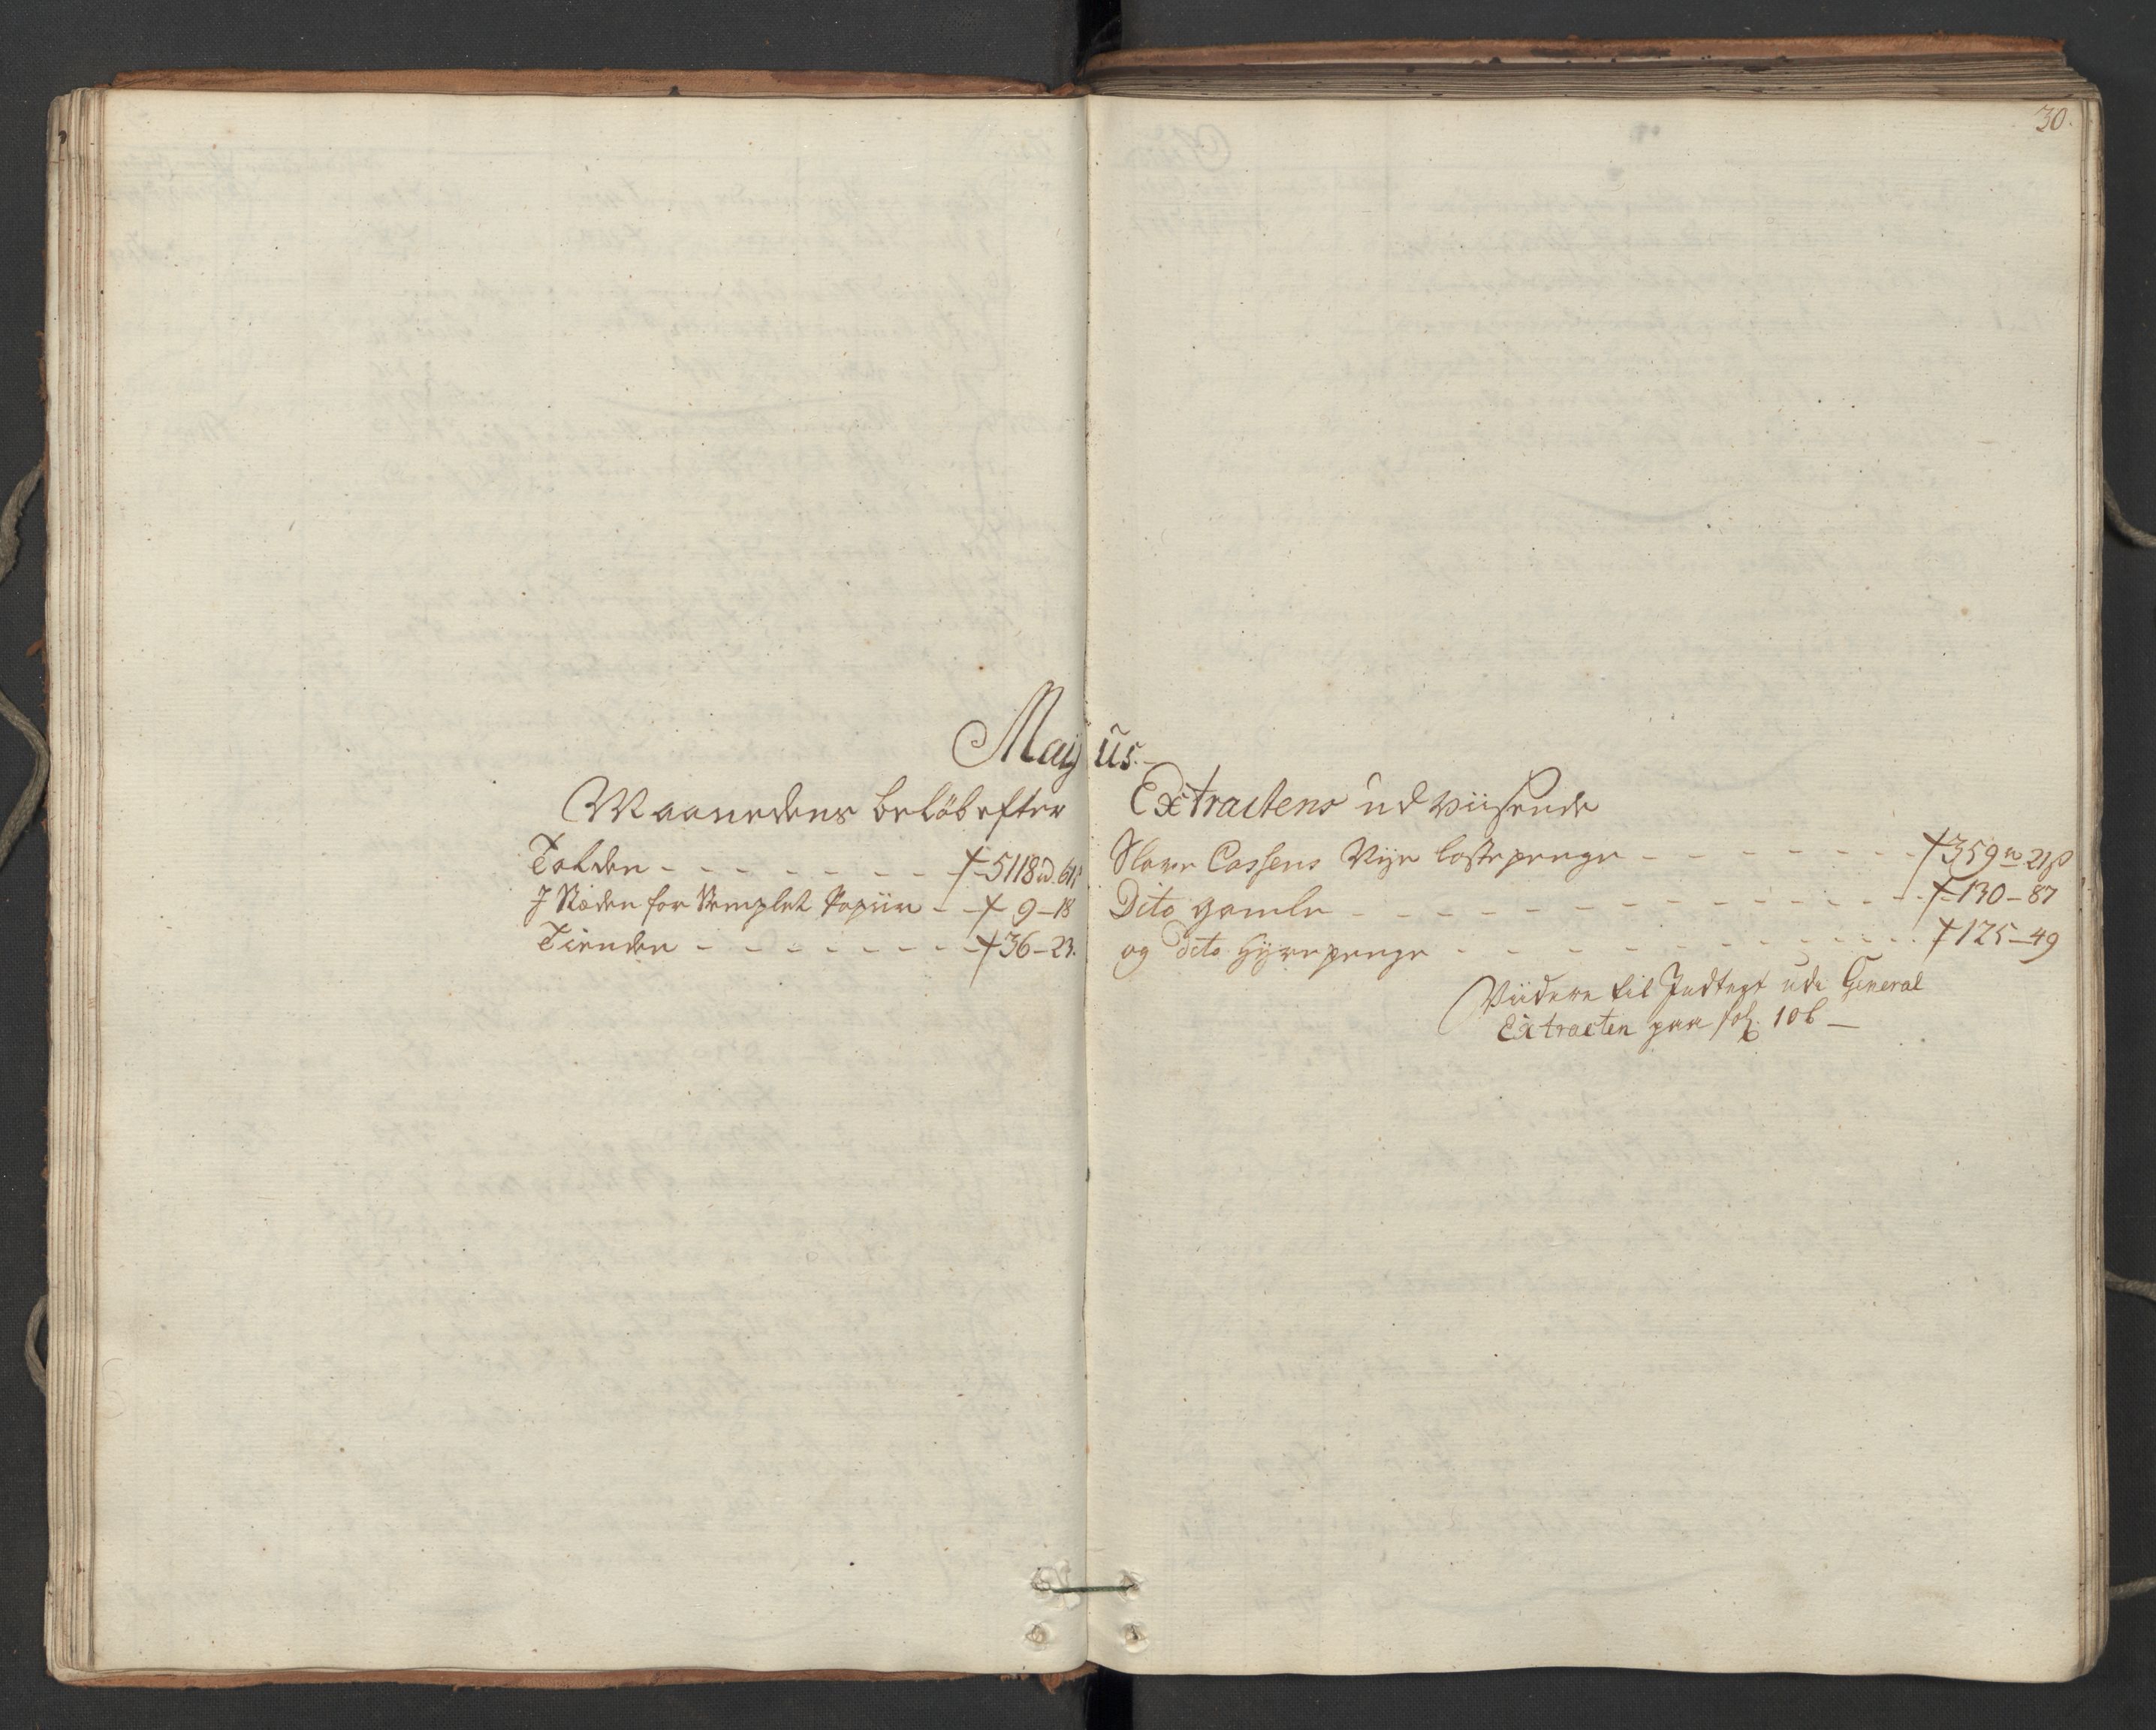 30.
Majus.
Maanedens beløb efter Extractens udviisende
Tolden - - - - - - - - 5118 rd. 61 s
I Stæden for Stemplet Papiir - - 9 - 18
Tienden - - - - - - - - 36 - 23.
Slave Cassens Nye lastepenge - - - - - - - 359 rd 21 s
Dito gamle - - - - - - - - - - - - - - 130 - 87
og dito hyrepenge - - - - - - - - - - - 125 - 49
Viidere til Indtegt udi General
Extracten paa fol. 106 —